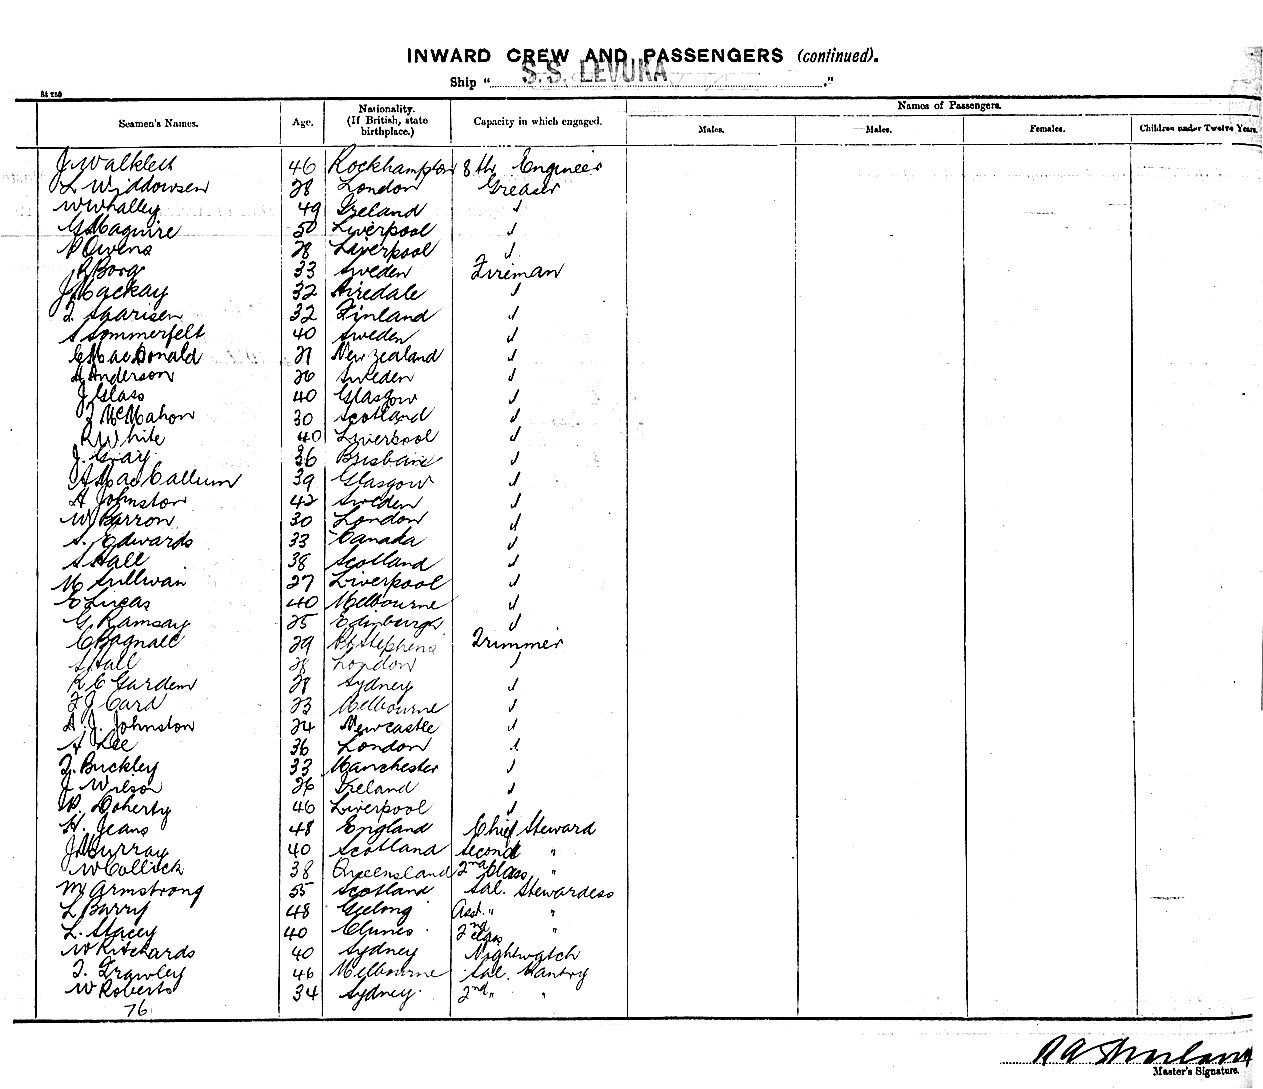 INWARD CREW AND PASSENGERS (continued).
Ship "S.S. LEVUKA"
Seamen's Names. Age. Nationality. (If British, state birthplace.) Capacity in which engaged. Names of Passengers.
Males. Males. Females. Children under Twelve Years.
J. Walklett 46 Rockhampton 8th Engineer
L Widdowsen 28 London Greaser
W Whalley 49 Ireland "
G Maguire 50 Liverpool "
P Owens 28 Liverpool "
R Borg 33 Sweden Fireman
J Mackay 32 Airedale "
32 Finland "
S Sommerfelt 40 Sweden "
C MacDonald 27 New Zealand "
A Anderson 26 Sweden "
J Glass 40 Glasgow "
J McMahon 30 Scotland "
R White 40 Liverpool "
J. Gray 36 Brisbane "
A MacCallum 39 Glasgow "
A Johnston 42 Sweden "
W Barron 30 London "
S. Edwards 33 Canada "
S Hall 38 Scotland "
M Sullivan 27 Liverpool "
E Lucas 40 Melbourne "
G. Ramsay 25 Edinburgh "
C Bagnall 29 Pt Stephens Trimmer
S Hall 28 London "
R C Garden 28 Sydney "
F J Card 23 Melbourne "
A. J. Johnston 24 Newcastle "
A Lee 36 London "
F. Buckley 33 Manchester "
J Wilson 26 Ireland "
P. Doherty 46 Liverpool "
H. Jeans 48 England Chief Steward
J Murray 40 Scotland Second "
W Collick 38 Queensland 2nd Class "
M Armstrong 55 Scotland Sal. Stewardess
L Barry 48 Geelong Asst. " "
L. Stacey 40 Clunes 2nd Class "
W Ritchards 40 Sydney Nightwatch
T. Frawley 46 Melbourne Sal. Pantry
W Roberts 34 Sydney 2nd " "
76
Master's Signature.